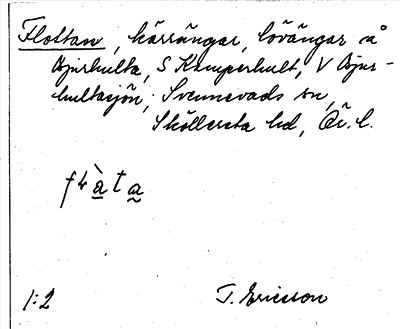 Flottan, kärrängar, lövängar å
Bjurhulta, S Kamperhult, V Bjur-
hultasjön, Svennevads sn,
Sköllersta hd, Ör. l.
flàta
1:2 T. Ericsson